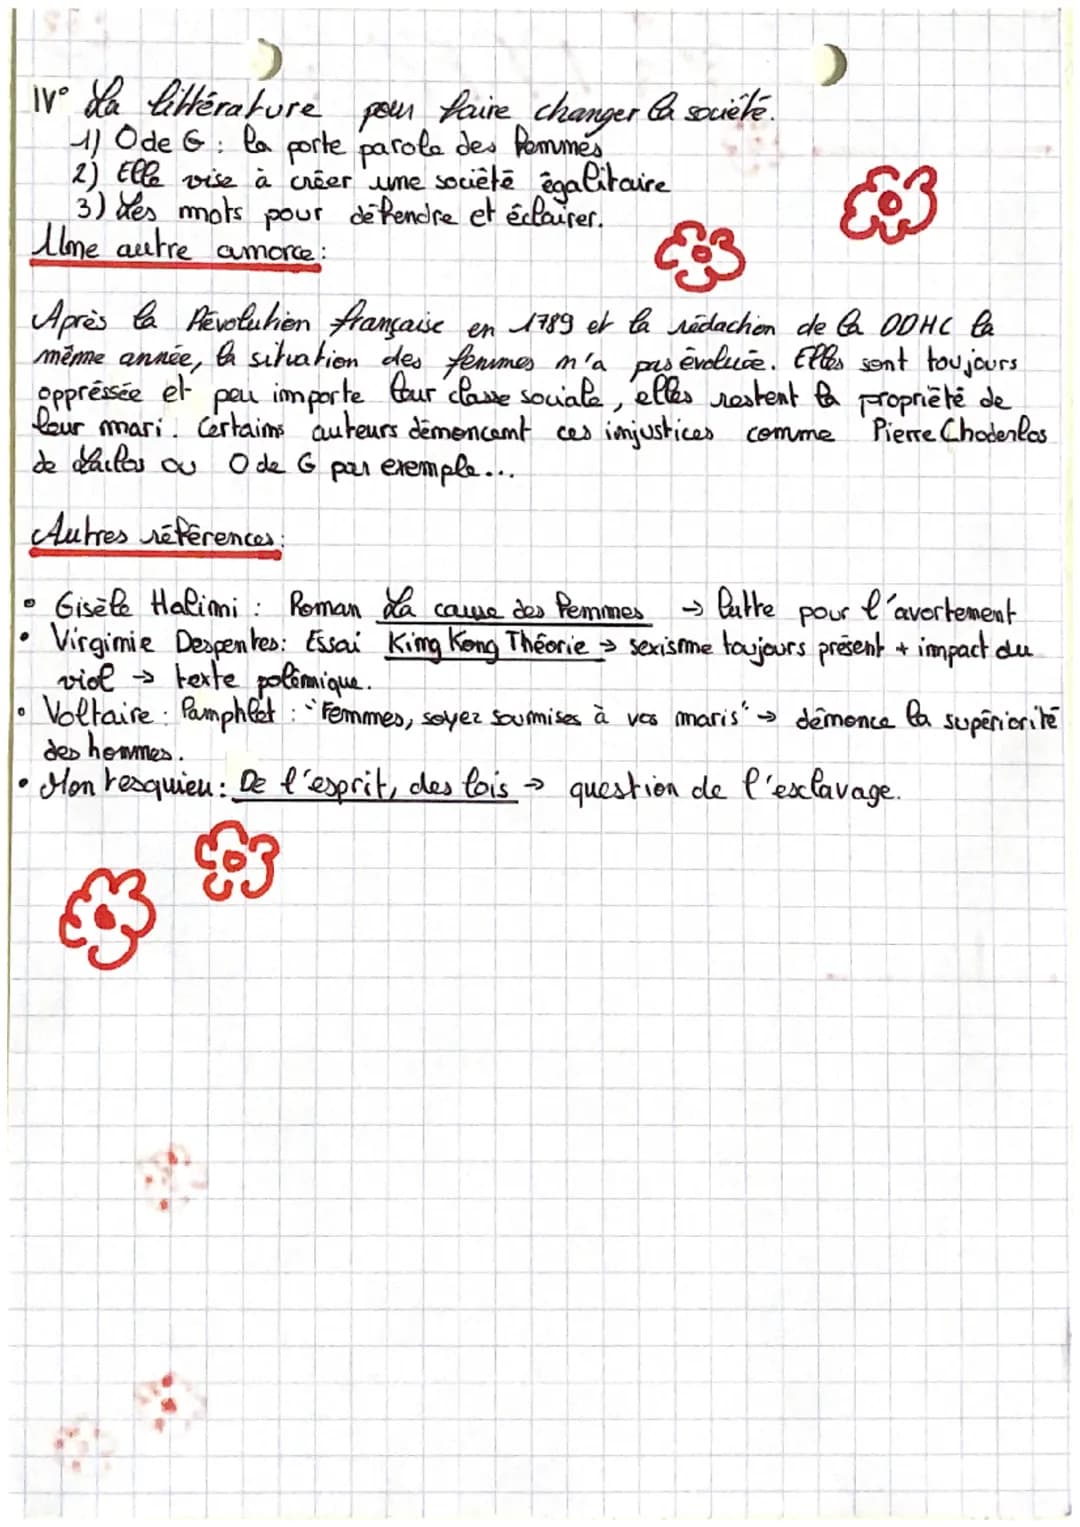 IV° La littérature pour faire changer la société.
1) O de G : la porte parole des femmes
2) Elle vise à créer une société égalitaire
3) Les mots pour défendre et éclairer.
Une autre amorce :
Après la Révolution française en 1789 et la rédaction de la DDHC la
même année, la situation des femmes n'a pas évoluée. Elles sont toujours
oppréssée et peu importe leur classe sociale, elles restent la propriété de
leur mari. Certains auteurs dénoncent ces injustices comme Pierre Choderlos
de Laclos ou O de G par exemple...
Autres références :
• Gisèle Halimi : Roman La cause des femmes → lutte pour l'avortement
• Virginie Despentes : Essai King Kong Théorie → sexisme toujours présent + impact du
viol → texte polémique.
• Voltaire : Pamphlet : "Femmes, soyez soumises à vos maris" → dénonce la supériorité
des hommes.
• Montesquieu : De l'esprit, des lois → question de l'esclavage.